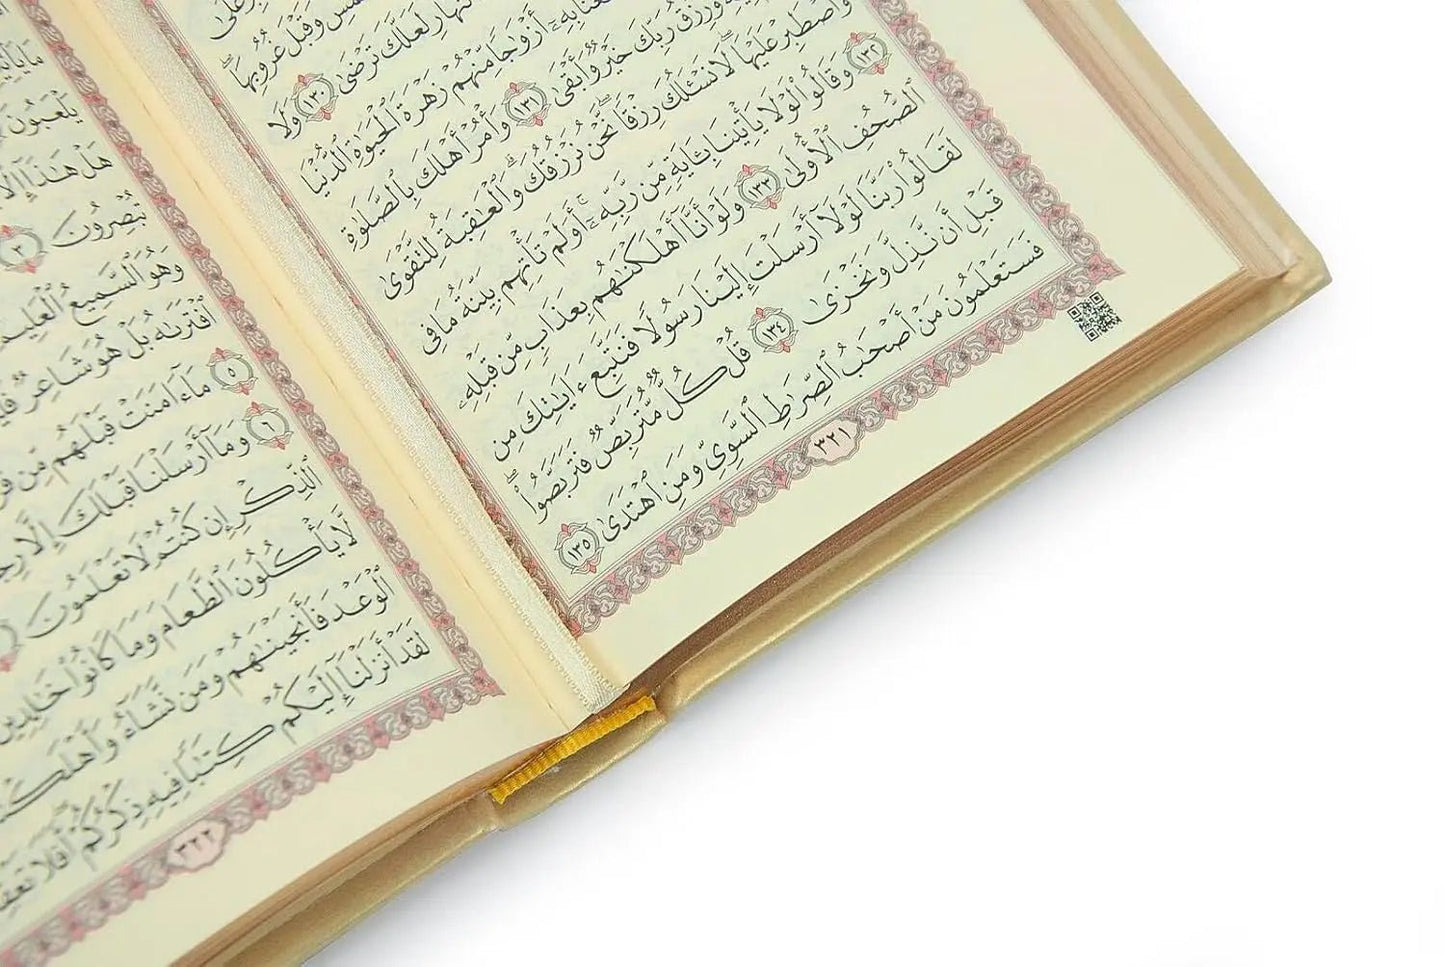 ٱلشَّمْسِ وَقَبْلَ غُرُوبِهَا ۖ
لَعَلَّكَ تَرْضَىٰ ١٣٠ وَلَا
بِهِۦٓ أَزْوَٰجًا مِّنْهُمْ زَهْرَةَ ٱلْحَيَوٰةِ ٱلدُّنْيَا
وَرِزْقُ رَبِّكَ خَيْرٌ وَأَبْقَىٰ ١٣١ وَأْمُرْ أَهْلَكَ بِٱلصَّلَوٰةِ
وَٱصْطَبِرْ عَلَيْهَا ۖ لَا نَسْـَٔلُكَ رِزْقًا ۖ نَّحْنُ نَرْزُقُكَ ۗ وَٱلْعَـٰقِبَةُ لِلتَّقْوَىٰ
١٣٢ وَقَالُوا۟ لَوْلَا يَأْتِينَا بِـَٔايَةٍ مِّن رَّبِّهِۦٓ ۚ أَوَلَمْ تَأْتِهِم بَيِّنَةُ مَا فِى
ٱلصُّحُفِ ٱلْأُولَىٰ ١٣٣ وَلَوْ أَنَّآ أَهْلَكْنَـٰهُم بِعَذَابٍ مِّن قَبْلِهِۦ
لَقَالُوا۟ رَبَّنَا لَوْلَآ أَرْسَلْتَ إِلَيْنَا رَسُولًا فَنَتَّبِعَ ءَايَـٰتِكَ مِن
قَبْلِ أَن نَّذِلَّ وَنَخْزَىٰ ١٣٤ قُلْ كُلٌّ مُّتَرَبِّصٌ فَتَرَبَّصُوا۟ ۖ
فَسَتَعْلَمُونَ مَنْ أَصْحَـٰبُ ٱلصِّرَٰطِ ٱلسَّوِىِّ وَمَنِ ٱهْتَدَىٰ ١٣٥
٣٢١
يَلْعَبُونَ
هَلْ هَـٰذَآ إِلَّا
تُبْصِرُونَ ٣
وَهُوَ ٱلسَّمِيعُ ٱلْعَلِيمُ
ٱفْتَرَىٰهُ بَلْ هُوَ شَاعِرٌ
٥ مَآ ءَامَنَتْ قَبْلَهُم مِّن
٦ وَمَآ أَرْسَلْنَا قَبْلَكَ إِلَّا
ٱلذِّكْرِ إِن كُنتُمْ لَا تَعْلَمُونَ
لَّا يَأْكُلُونَ ٱلطَّعَامَ وَمَا كَانُوا۟ خَـٰلِدِينَ
ٱلْوَعْدَ فَأَنجَيْنَـٰهُمْ وَمَن نَّشَآءُ وَأَهْلَكْنَا
لَقَدْ أَنزَلْنَآ إِلَيْكُمْ كِتَـٰبًا فِيهِ ذِكْرُكُمْ ۖ أَفَلَا
٣٢٢